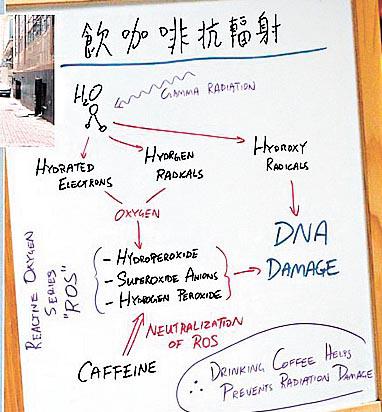 飲咖啡抗輻射
H₂O
GAMMA RADIATION
HYDRATED
ELECTRONS
HYDRGEN
RADICALS
HYDROXY
RADICALS
OXYGEN
REACTIVE OXYGEN
SERIES
"ROS"
- HYDROPEROXIDE
- SUPEROXIDE ANIONS
- HYDROGEN PEROXIDE
DNA
DAMAGE
NEUTRALIZATION
OF ROS
CAFFEINE
∴ DRINKING COFFEE HELPS
PREVENTS RADIATION DAMAGE